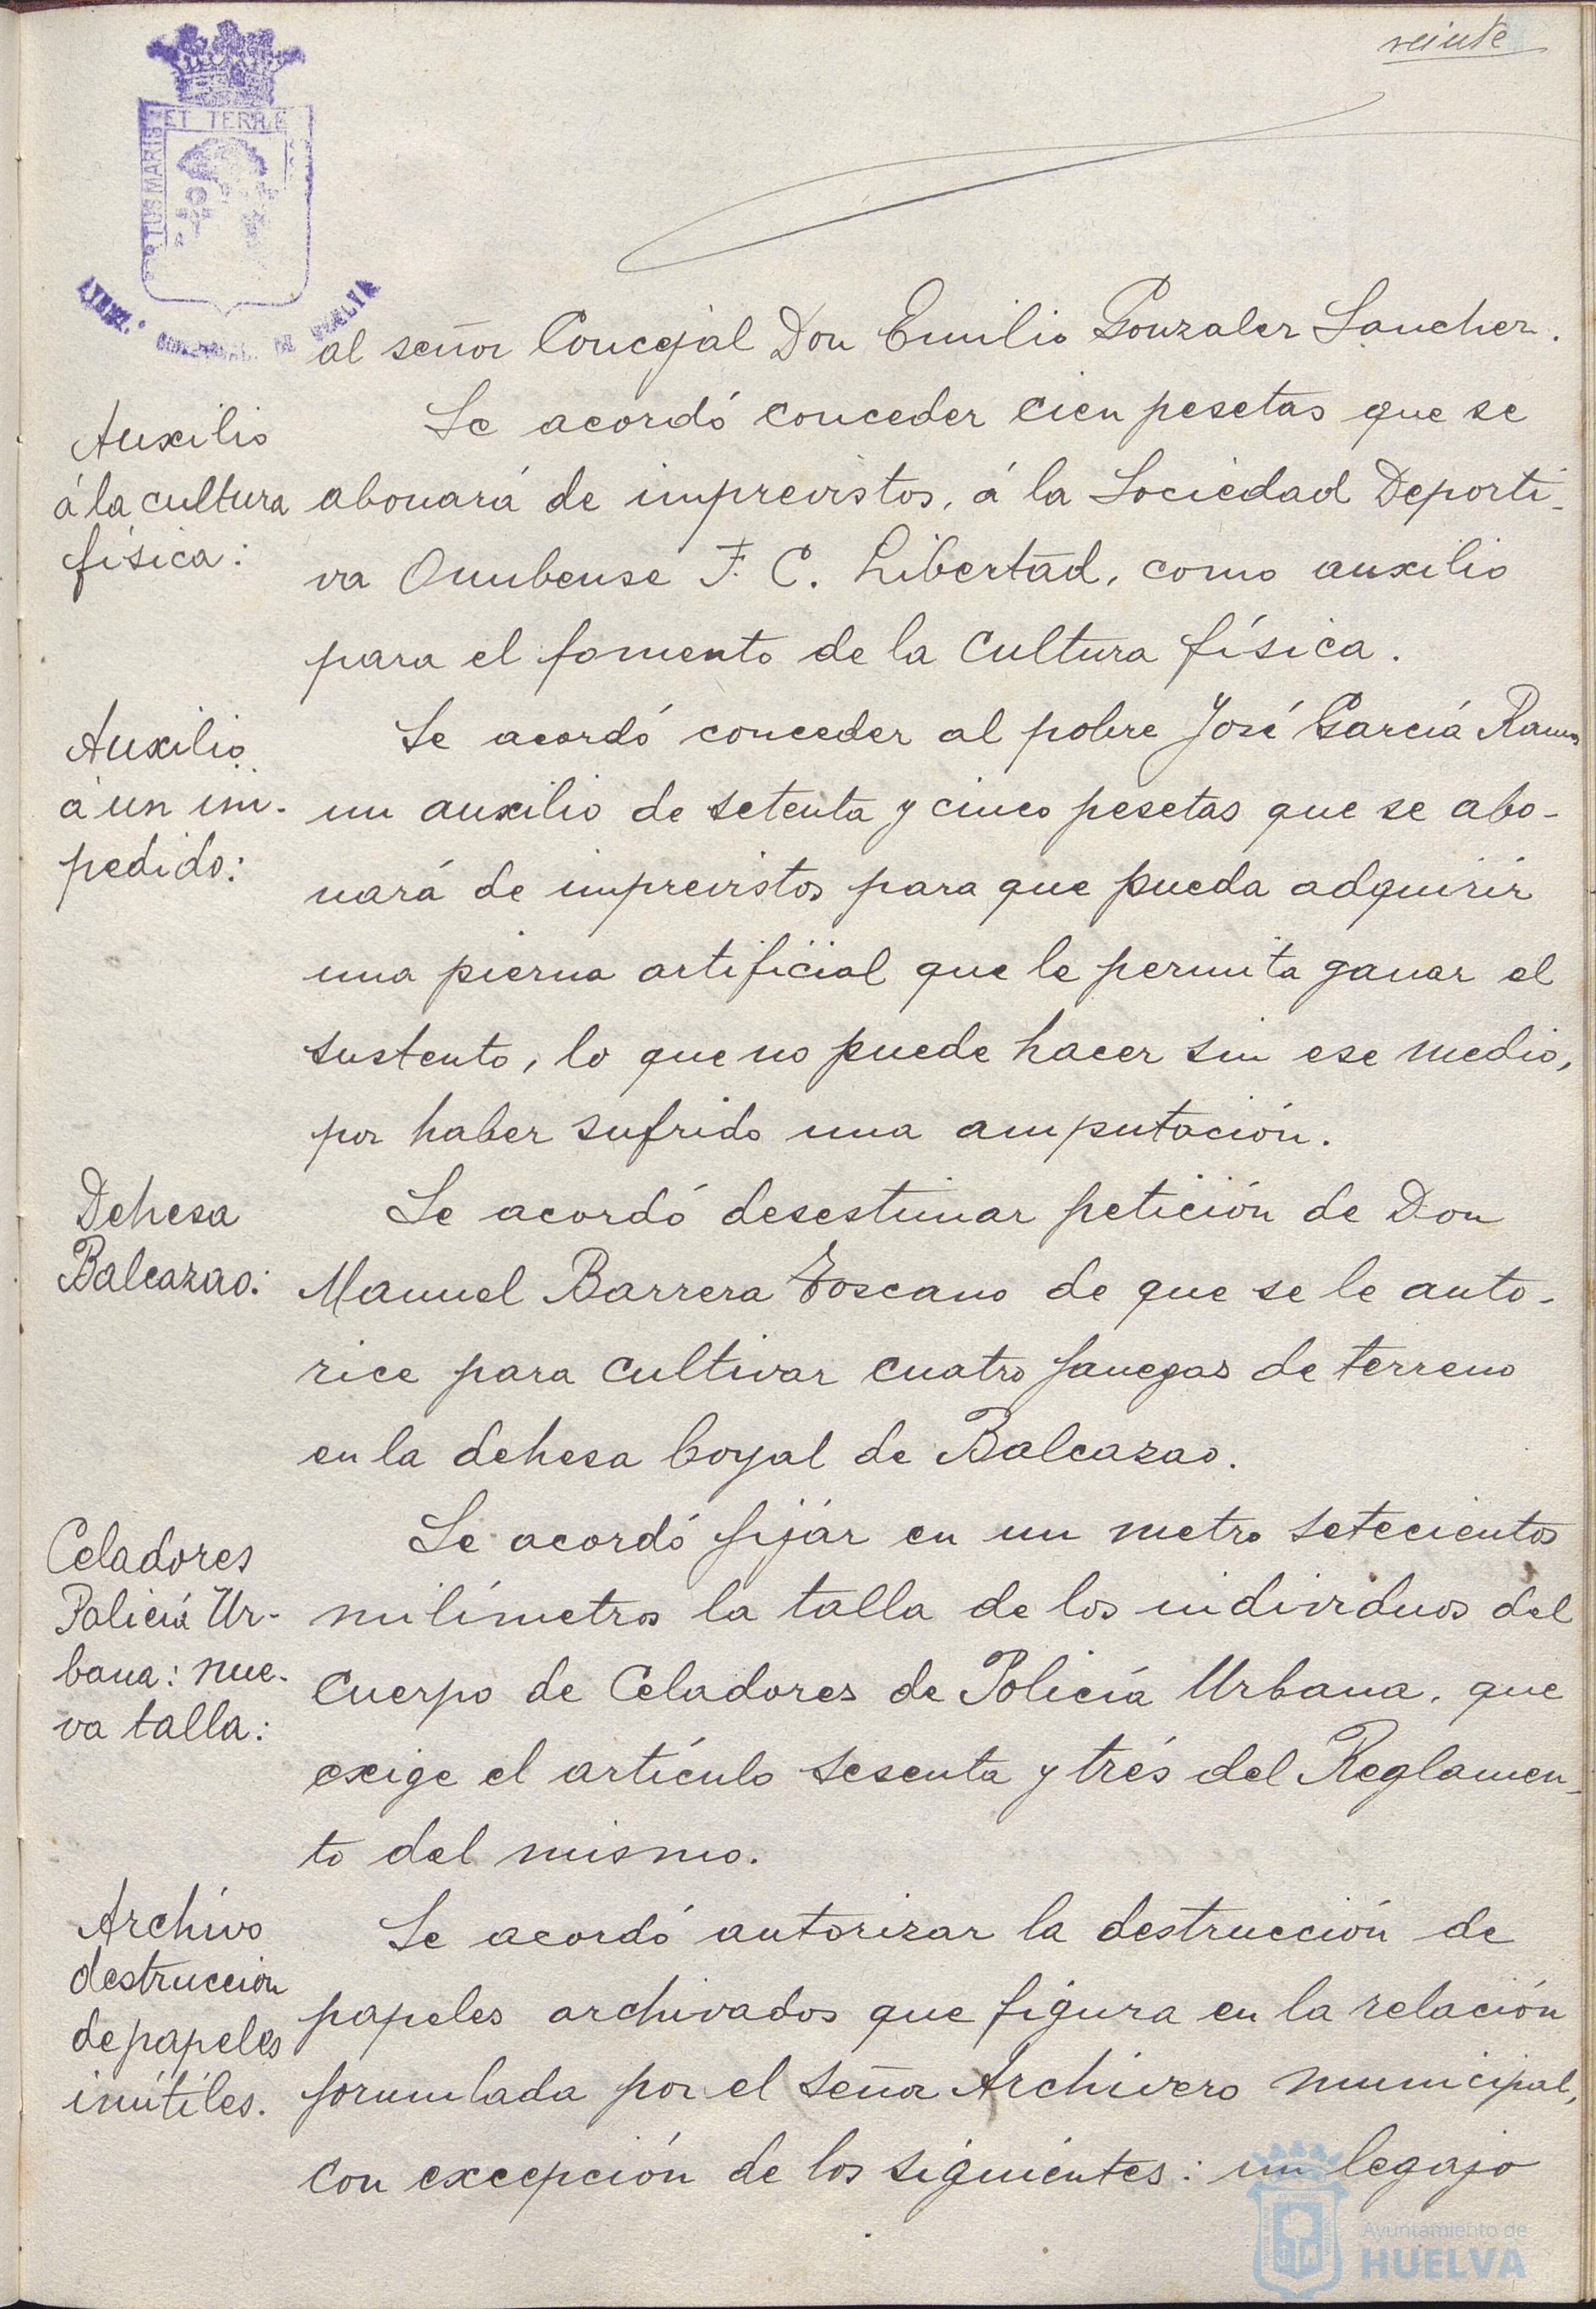 veinte
ET TERRÆ
TUS MARIS
AYUNT.º CONSTITUCIONAL DE HUELVA
al señor Concejal Don Emilio Gonzalez Sanchez.
Auxilio
á la cultura
física:
Se acordó conceder cien pesetas que se
abonará de imprevistos, á la Sociedad Deporti-
va Onubense F. C. Libertad, como auxilio
para el fomento de la cultura física.
Auxilio
á un im-
pedido:
Se acordó conceder al pobre José García Ramos
un auxilio de setenta y cinco pesetas que se abo-
nará de imprevistos para que pueda adquirir
una pierna artificial que le permita ganar el
sustento, lo que no puede hacer sin ese medio,
por haber sufrido una amputación.
Dehesa
Balcazao:
Se acordó desestimar petición de Don
Manuel Barrera Toscano de que se le auto-
rice para cultivar cuatro fanegas de terreno
en la dehesa boyal de Balcazao.
Celadores
Policía Ur-
bana: nue-
va talla:
Se acordó fijar en un metro setecientos
milímetros la talla de los individuos del
Cuerpo de Celadores de Policía Urbana, que
exige el artículo sesenta y trés del Reglamen-
to del mismo.
Archivo
destruccion
de papeles
inútiles.
Se acordó autorizar la destrucción de
papeles archivados que figura en la relación
formulada por el señor Archivero municipal,
con excepción de los siguientes: un legajo
Ayuntamiento de
HUELVA